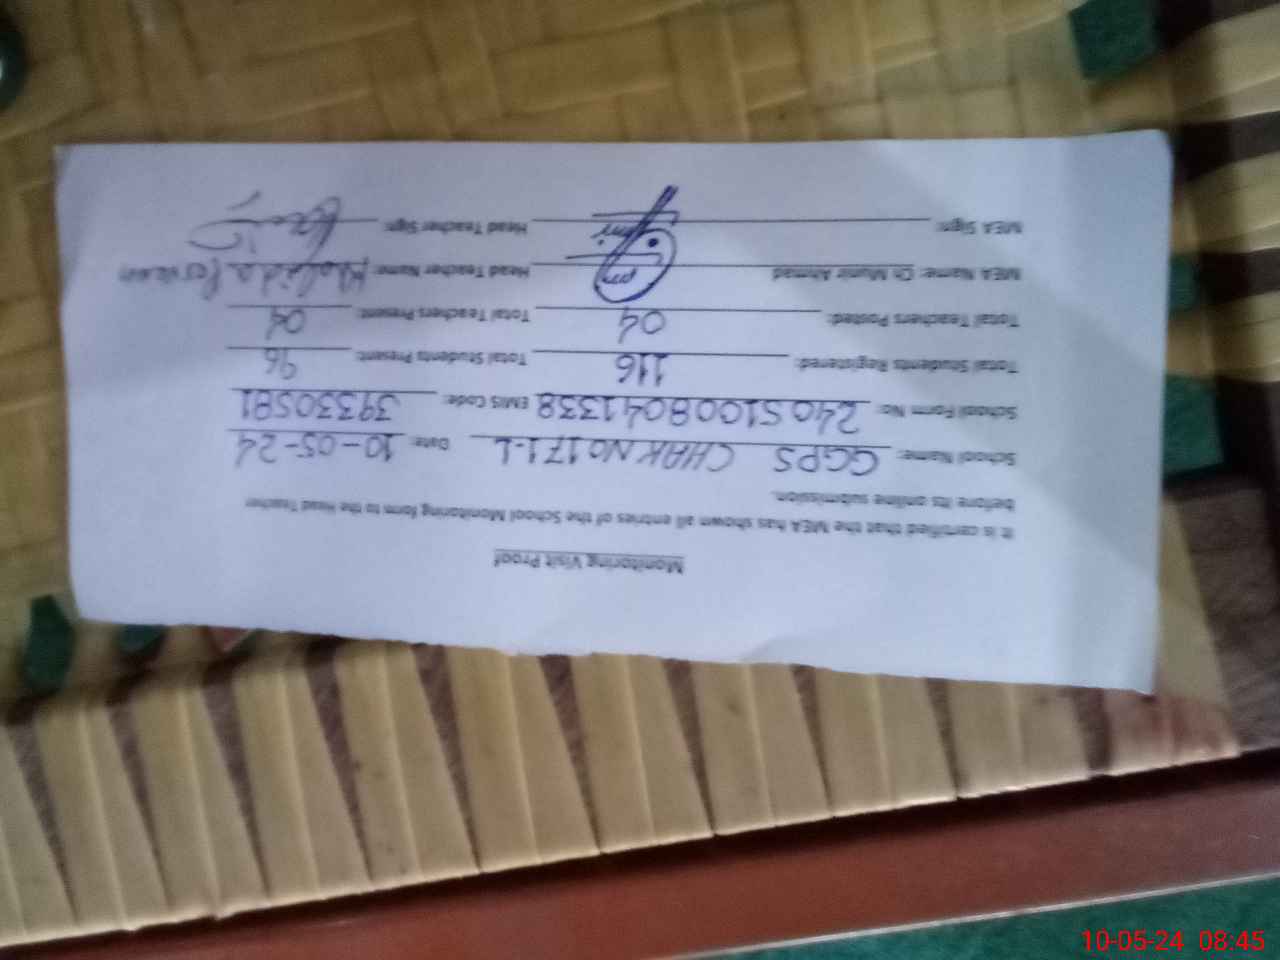 Monitoring Visit Proof
It is certified that the MEA has shown all entries of the School Monitoring form to the Head Teacher
before its online submission.
School Name: GGPS CHAK NO 171-L Date: 10-05-24
School Form No: 24051008041338 EMIS Code: 39330581
Total Students Registered: 116 Total Students Present: 96
Total Teachers Posted: 04 Total Teachers Present: 04
MEA Name: Ch Munir Ahmad Head Teacher Name: Khalida Parveen
MEA Sign: Head Teacher Sign:
10-05-24 08:45